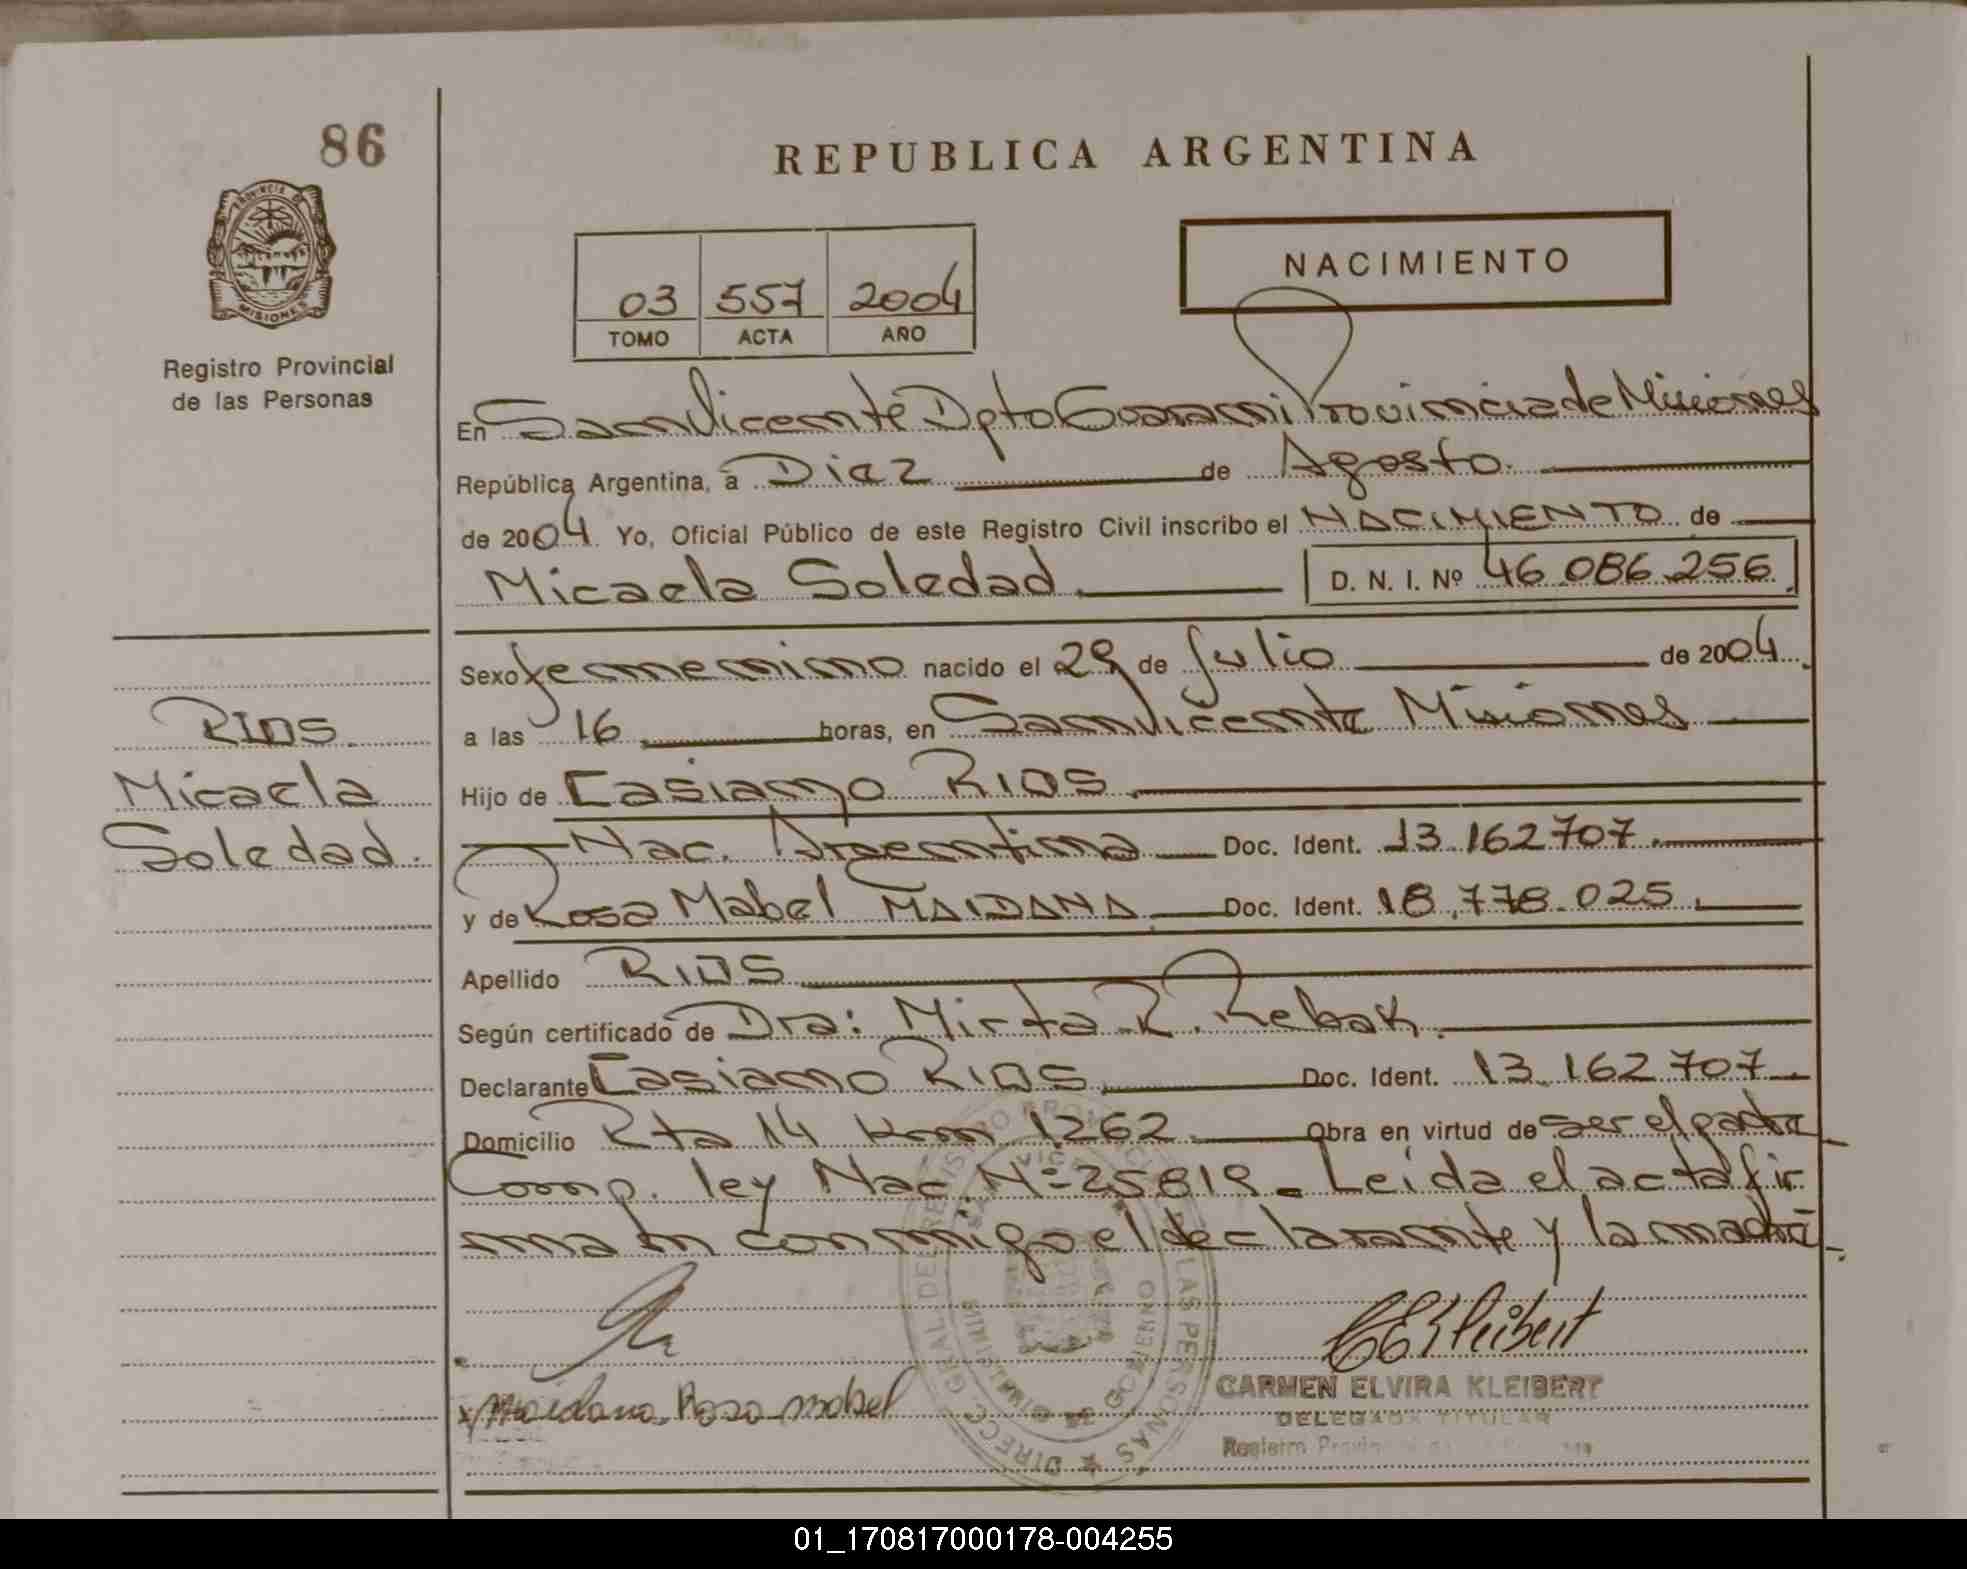 86
REPUBLICA ARGENTINA
PROVINCIA DE
MISIONES
NACIMIENTO
03 557 2004
TOMO ACTA AÑO
Registro Provincial
de las Personas
En San Vicente Dpto Guarani Provincia de Misiones
República Argentina, a Diez de Agosto
de 2004 Yo, Oficial Público de este Registro Civil inscribo el NACIMIENTO de
Micaela Soledad D. N. I. Nº 46.086.256
Sexo femenino nacido el 29 de Julio de 2004
a las 16 horas, en San Vicente Misiones
RIOS
Micaela
Soledad.
Hijo de Casiano RIOS
Nac. Argentina Doc. Ident. 13.162707
y de Rosa Mabel MAIDANA Doc. Ident. 18.778.025
Apellido RIOS
Según certificado de Dra: Mirta R. Rebak.
Declarante Casiano RIOS Doc. Ident. 13.162.707
Domicilio Rta 14 Km 1262 Obra en virtud de ser el padre
Comp. ley Nac. Nº 25819 - Leida el acta fir
man conmigo el declarante y la madre
CEKleibert
x Maidana Rosa mabel
CARMEN ELVIRA KLEIBERT
DELEGADA TITULAR
Registro
01_170817000178-004255